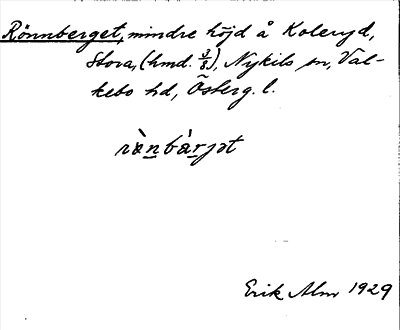 Rönnberget, mindre höjd å Koleryd,
Stora, (hmd. 3/8), Nykils sn, Val-
kebo hd, Österg. l.
rö̀nbàrjət
Erik Alm 1929